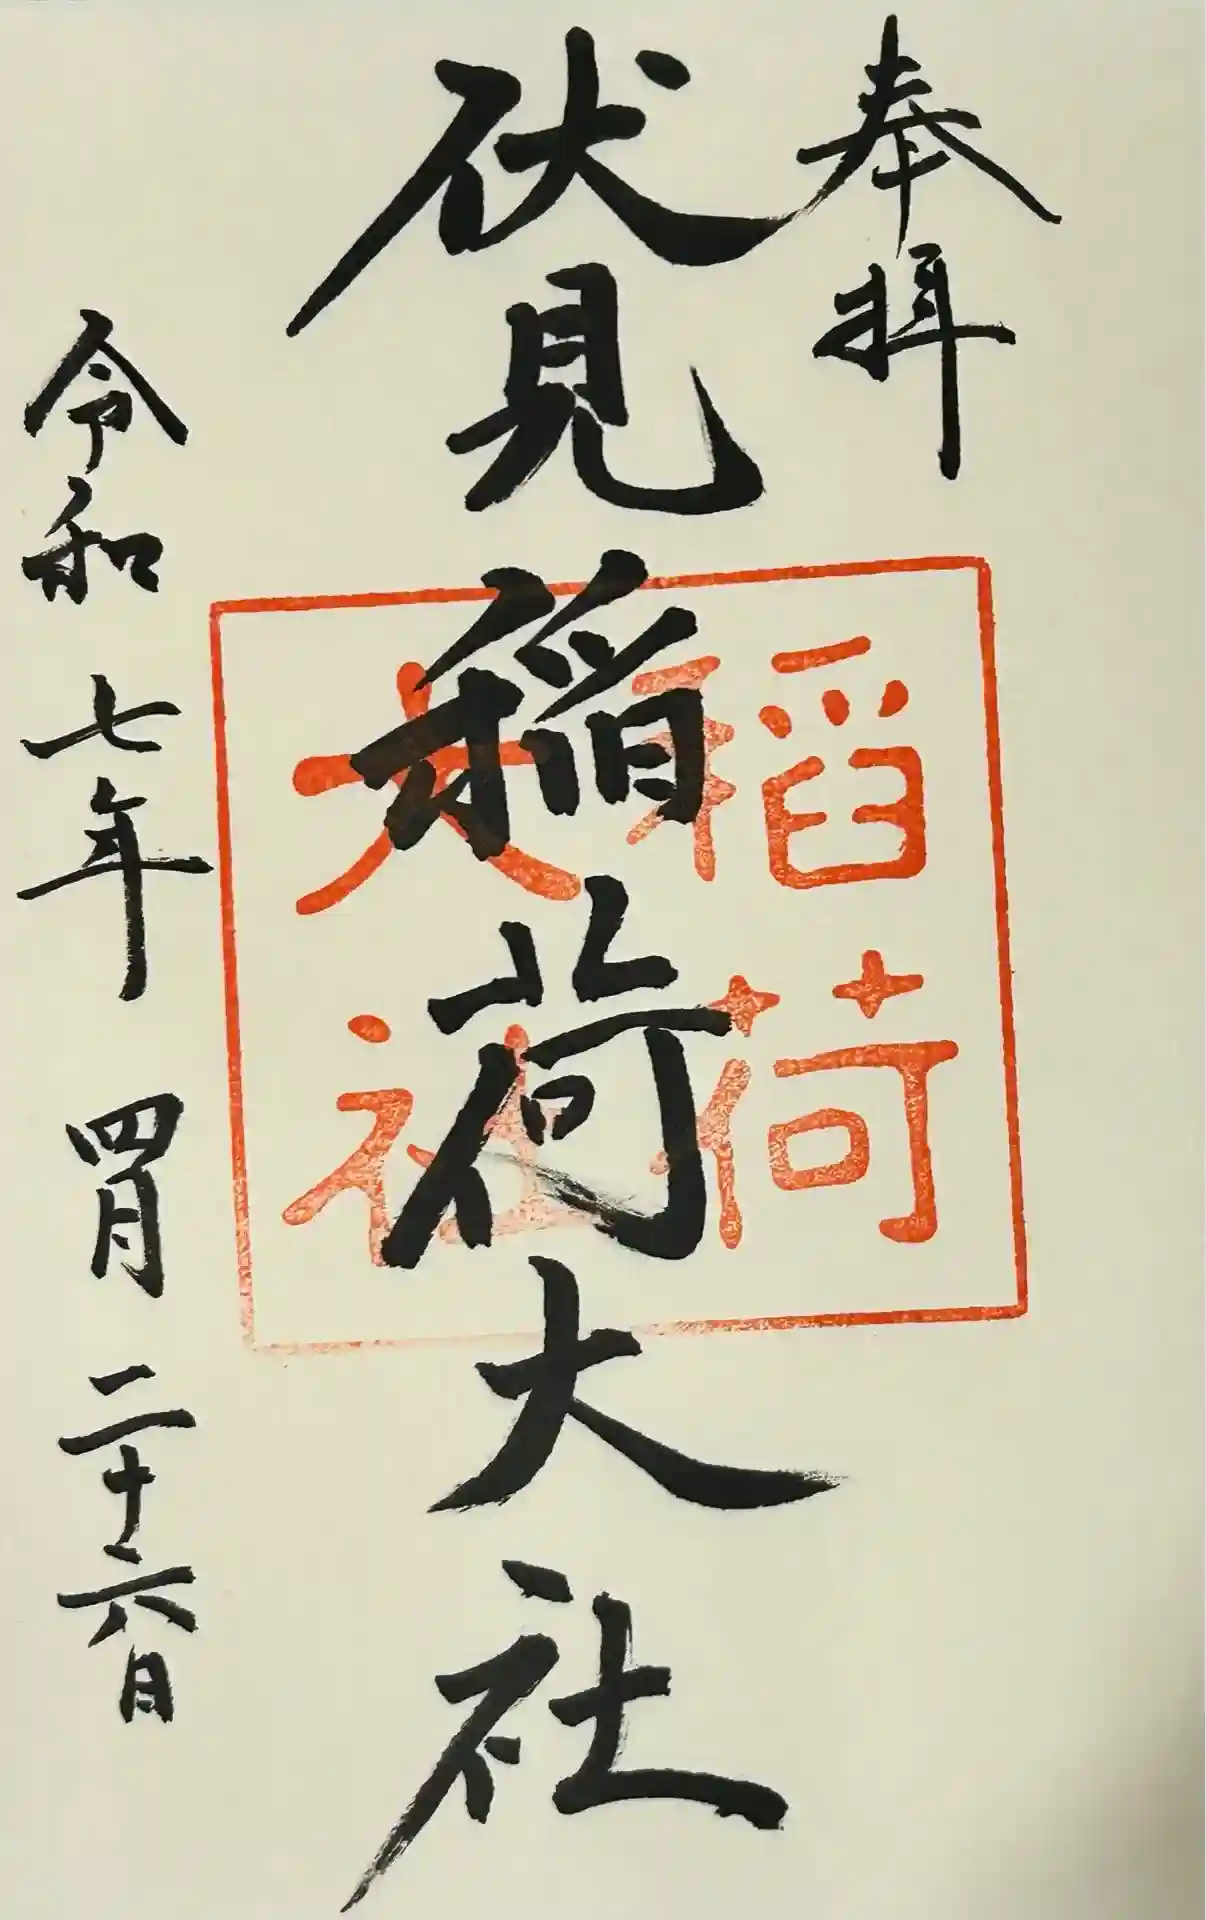 奉拝
伏見稲荷大社
稲荷
大社
令和七年四月二十六日